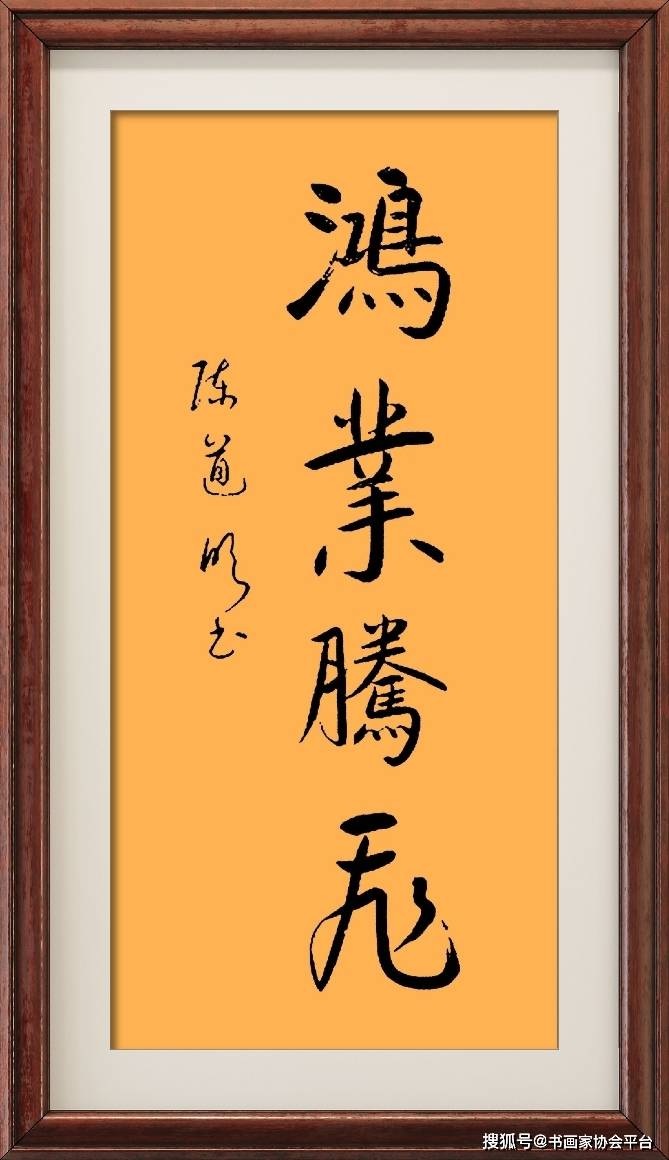 鴻業騰飛
陈道明书
搜狐号@书画家协会平台